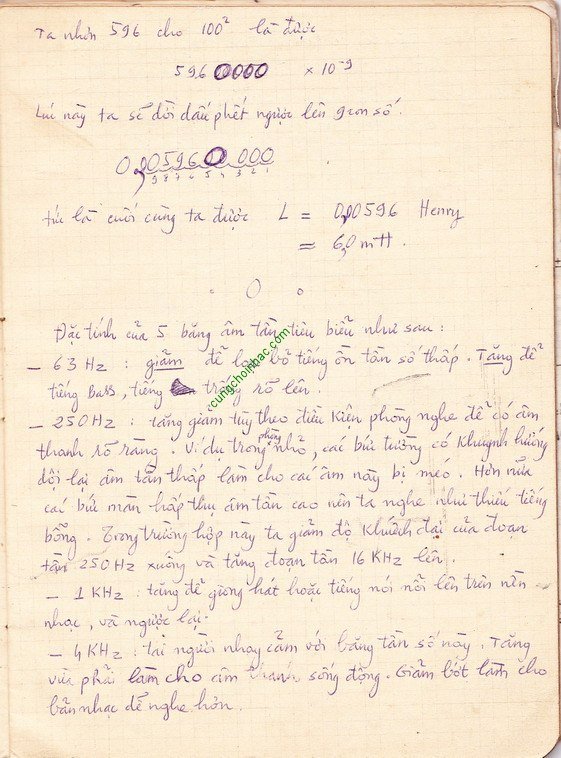 Ta nhơn 596 cho 100² là được
5960000 x 10⁻⁹
Lúc này ta sẽ dời dấu phết ngược lên 9 con số.
0,005960000
9 8 7 6 5 4 3 2 1
tức là cuối cùng ta được L = 0,00596 Henry
≈ 6,0 mH.
0
Đặc tính của 5 băng âm tần tiêu biểu như sau:
- 63 Hz : giảm để loại bỏ tiếng ồn tần số thấp. Tăng để
tiếng Bass, tiếng trống rõ lên.
- 250Hz : tăng giảm tùy theo điều kiện phòng nghe để có âm
thanh rõ ràng. Ví dụ trong phòng nhỏ, các bức tường có khuynh hướng
dội lại âm tần thấp làm cho các âm này bị méo. Hơn nữa
các bức màn hấp thụ âm tần cao nên ta nghe như thiếu tiếng
bổng. Trong trường hợp này ta giảm độ khuếch đại của đoạn
tần 250Hz xuống và tăng đoạn tần 16 KHz lên.
- 1 KHz : tăng để giọng hát hoặc tiếng nói nổi lên trên nền
nhạc, và ngược lại.
- 4 KHz : tai người nhạy cảm với băng tần số này. Tăng
vừa phải làm cho âm thanh sống động. Giảm bớt làm cho
bản nhạc dễ nghe hơn.
cungchoinhac.com